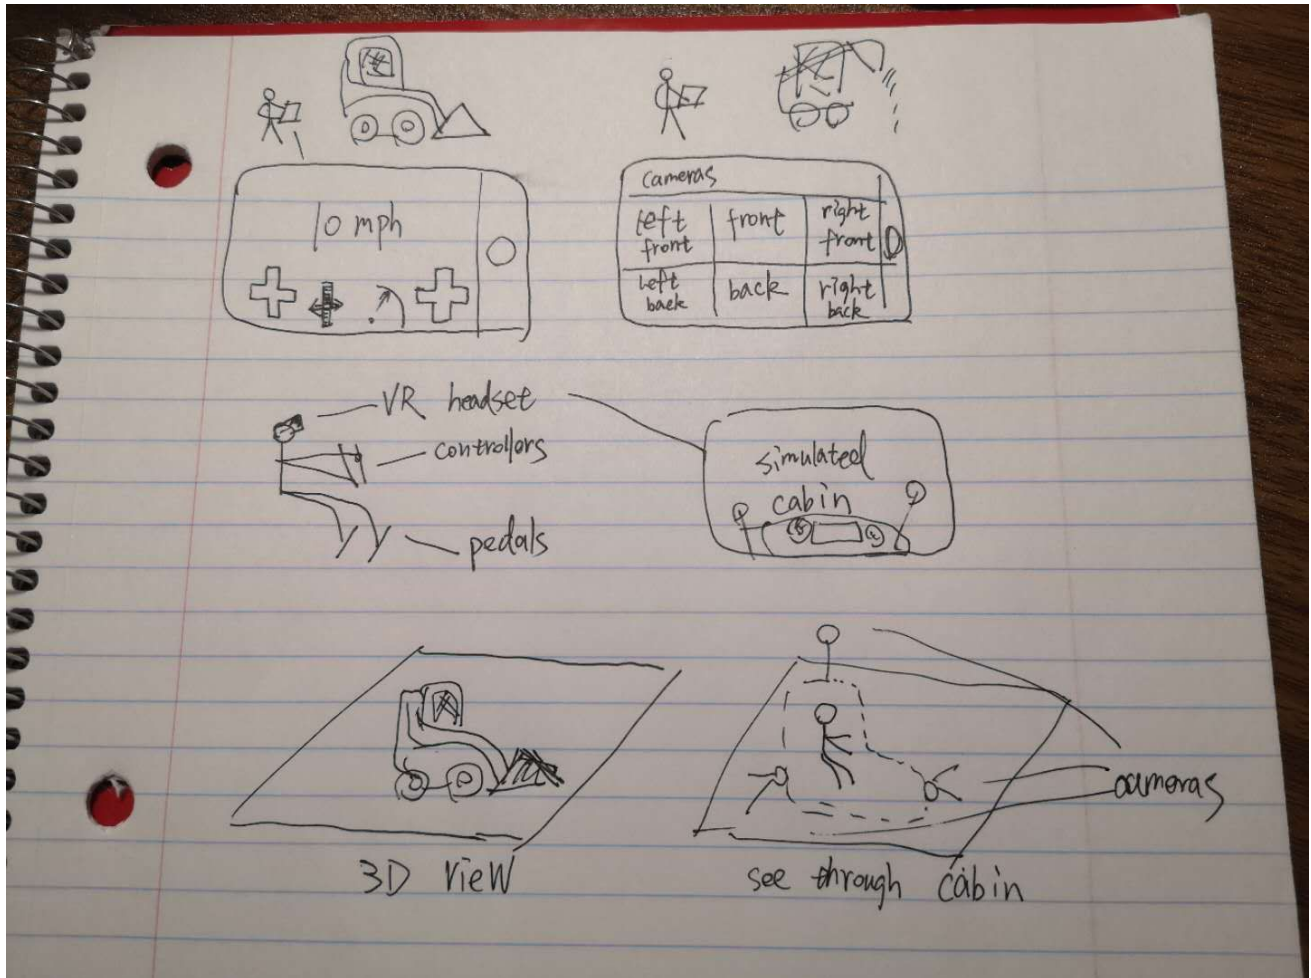 10 mph
cameras
left
front
front
right
front
left
back
back
right
back
VR headset
controllors
pedals
simulated
cabin
3D view
see through cabin
cameras